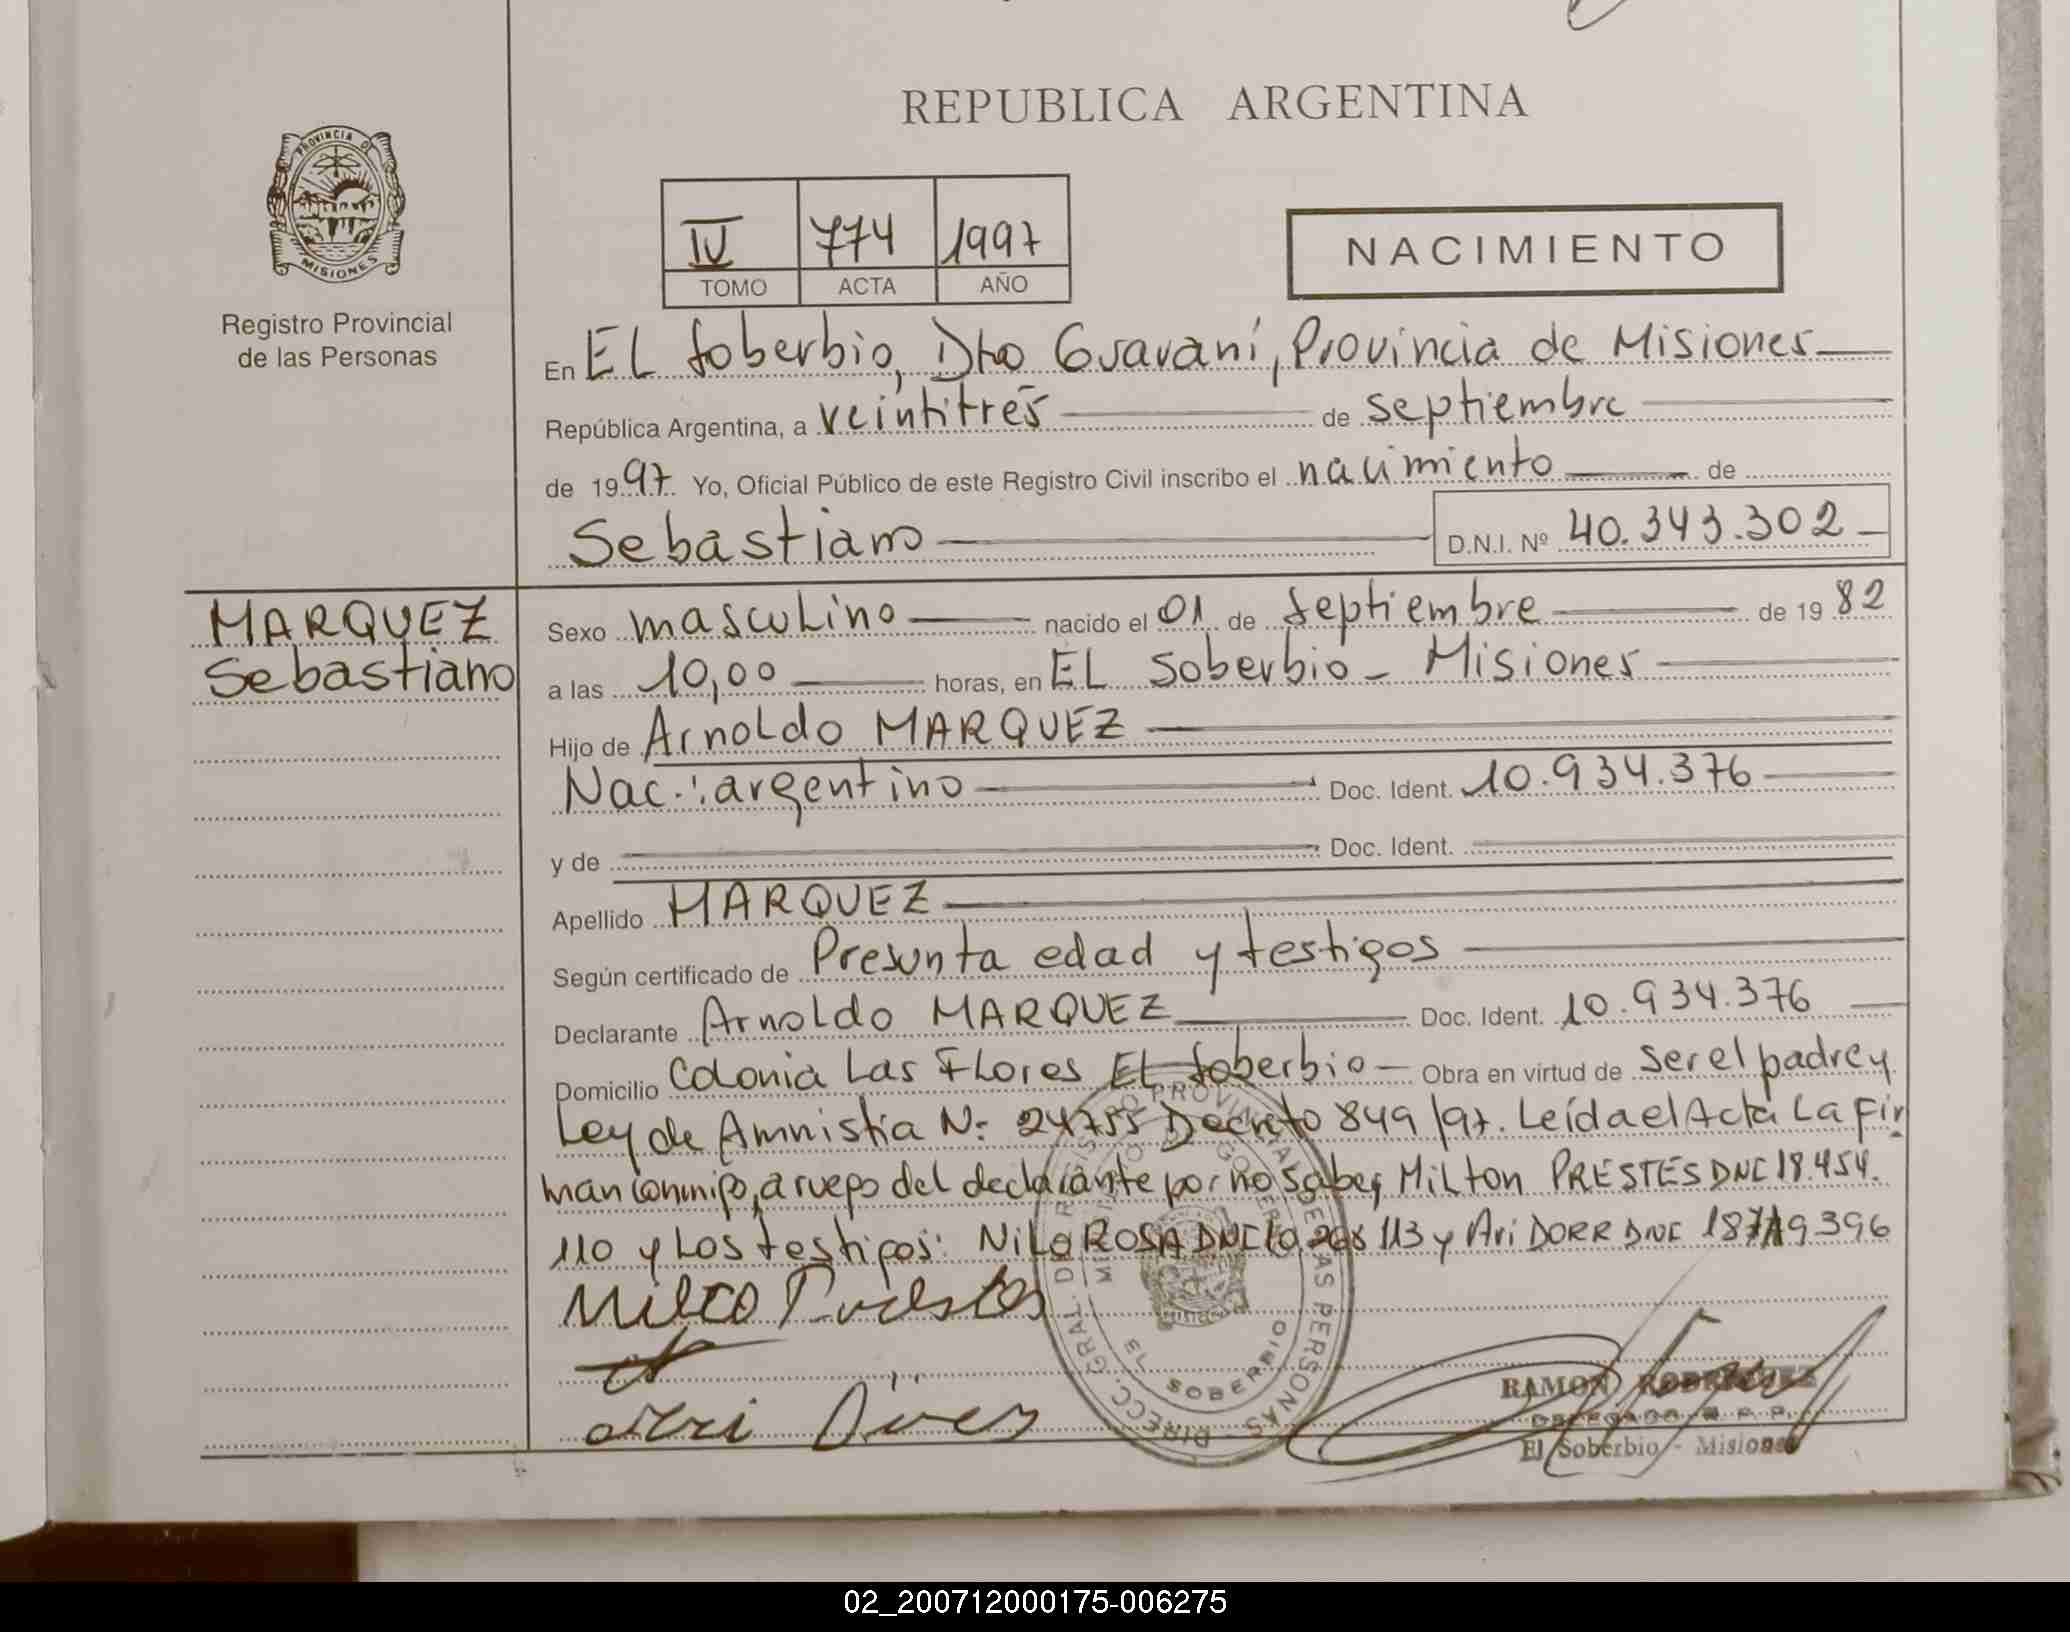 REPUBLICA ARGENTINA
PROVINCIA DE
MISIONES
Registro Provincial
de las Personas
IV 774 1997
TOMO ACTA AÑO
NACIMIENTO
En EL Soberbio, Dto Guaraní, Provincia de Misiones
República Argentina, a veintitrés de septiembre
de 1997. Yo, Oficial Público de este Registro Civil inscribo el nacimiento de
Sebastiano D.N.I. Nº 40.343.302
MARQUEZ
Sebastiano
Sexo masculino nacido el 01 de septiembre de 19 82
a las 10,00 horas, en EL Soberbio - Misiones
Hijo de Arnoldo MARQUEZ
Nac.: argentino Doc. Ident. 10.934.376
y de Doc. Ident.
Apellido MARQUEZ
Según certificado de Presunta edad y testigos
Declarante Arnoldo MARQUEZ Doc. Ident. 10.934.376
Domicilio Colonia Las Flores EL Soberbio - Obra en virtud de ser el padre y
Ley de Amnistia N: 24755 Decreto 849/97. Leída el Acta La fir
man conmigo, a ruego del declarante por no saber, Milton PRESTES DNI 18.454.
110 y Los testigos: Nilo ROSA DNI 113 y Ari DORR DNI
DIRECC. GRAL. DE REGISTRO PROVINCIAL DE LAS PERSONAS
EL SOBERBIO
RAMON RODRIGUEZ
DELEGADO R.P.P.
El Soberbio - Misiones
02_200712000175-006275